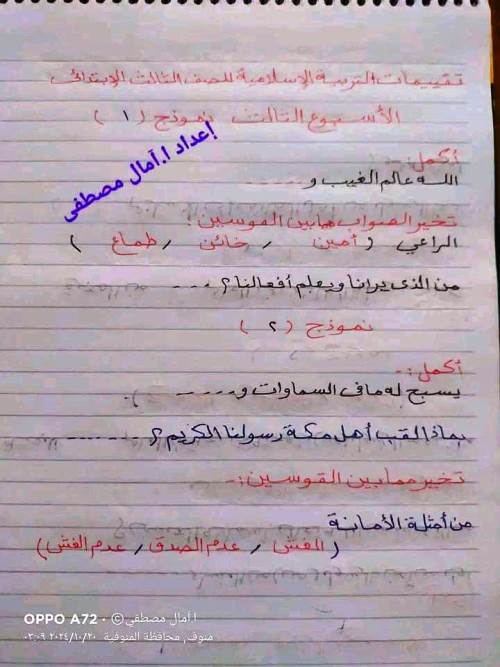 تقييمات التربية الإسلامية للصف الثالث الإبتدائى
الأسبوع الثالث نموذج (١)
إعداد ا.آمال مصطفى
أكمل:-
الله عالم الغيب و ......
تخير الصواب مما بين القوسين:
الراعي (أمين / خائن / طماع)
من الذى يرانا ويعلم أفعالنا؟ ....
نموذج (٢)
أكمل:-
يسبح له ما فى السماوات و......
بماذا لقب أهل مكة رسولنا الكريم؟ .......
تخير مما بين القوسين:-
من أمثلة الأمانة
(الغش / عدم الصدق / عدم الغش)
OPPO A72 · ©ا.آمال مصطفى
منوف, محافظة المنوفية ٢٠٢٤/١٠/٢٠ ٠٣:٠٩